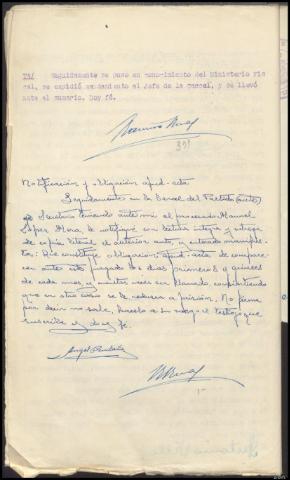 Seguidamente se puso en conocimiento del Ministerio Fis
cal, se expidió mandamiento al Jefe de la carcel, y se llevó
ante el sumario. Doy fé.
Notificación y obligación apud-acta
Seguidamente en la Carcel del Partido
el Secretario teniendo ante mi al procesado Manuel
López Mora, le notifiqué con lectura integra y entrega
de copia literal el anterior auto, y enterado
: Que constituye obligacion apud-acta de compare-
cer ante este juzgado los dias primeros y quinces
de cada mes y cuantas veces sea llamado, 
que en otro caso se le reducirá a prisión. No firma
por decir no sabe, haciéndolo a su ruego el testigo que
suscribe y doy fe.
Angel